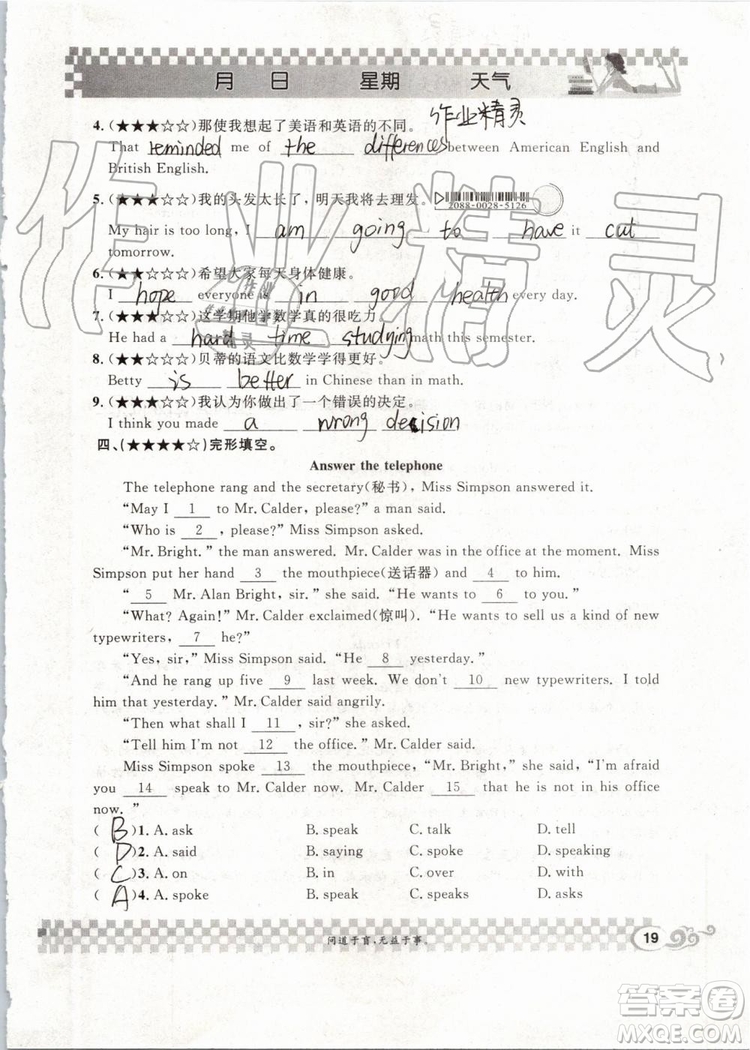 月 日 星期 天气
作业精灵
4. (★★★☆☆)那使我想起了美语和英语的不同。
That reminded me of the differences between American English and
British English.
5. (★★★☆☆)我的头发太长了，明天我将去理发。
2088-0028-5126
My hair is too long, I am going to have it cut
tomorrow.
6. (★★★☆☆)希望大家每天身体健康。
I hope everyone is in good health every day.
7. (★★★☆☆)这学期他学数学真的很吃力。
He had a hard time studying math this semester.
8. (★★★☆☆)贝蒂的语文比数学学得更好。
Betty is better in Chinese than in math.
9. (★★★☆☆)我认为你做出了一个错误的决定。
I think you made a wrong decision.
四、(★★★★☆)完形填空。
Answer the telephone
The telephone rang and the secretary(秘书), Miss Simpson answered it.
“May I 1 to Mr. Calder, please?” a man said.
“Who is 2 , please?” Miss Simpson asked.
“Mr. Bright. ” the man answered. Mr. Calder was in the office at the moment. Miss
Simpson put her hand 3 the mouthpiece(送话器) and 4 to him.
“ 5 Mr. Alan Bright, sir.” she said. “He wants to 6 to you.”
“What? Again!” Mr. Calder exclaimed(惊叫). “He wants to sell us a kind of new
typewriters, 7 he?”
“Yes, sir,” Miss Simpson said. “He 8 yesterday.”
“And he rang up five 9 last week. We don't 10 new typewriters. I told him
that yesterday.” Mr. Calder said angrily.
“Then what shall I 11 , sir?” she asked.
“Tell him I'm not 12 the office.” Mr. Calder said.
Miss Simpson spoke 13 the mouthpiece, “Mr. Bright,” she said. “I'm afraid
you 14 speak to Mr. Calder now. Mr. Calder 15 that he is not in his office
now. ”
( B )1. A. ask B. speak C. talk D. tell
( D )2. A. said B. saying C. spoke D. speaking
( C )3. A. on B. in C. over D. with
( A )4. A. spoke B. speak C. speaks D. asks
问道于盲，无益于事。
19
作业精灵
答案圈
MXQE.COM